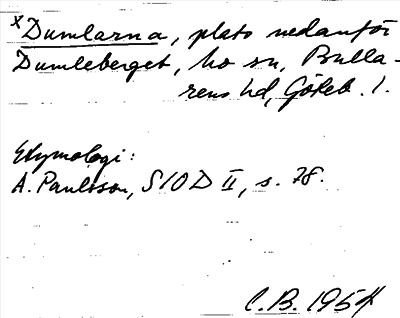 x Dumlarna, plats nedanför
Dumleberget, Mo sn, Bulla-
rens hd, Göteb. l.
Etymologi:
A. Paulsson, SIOD II, s. 78.
C.B. 1954